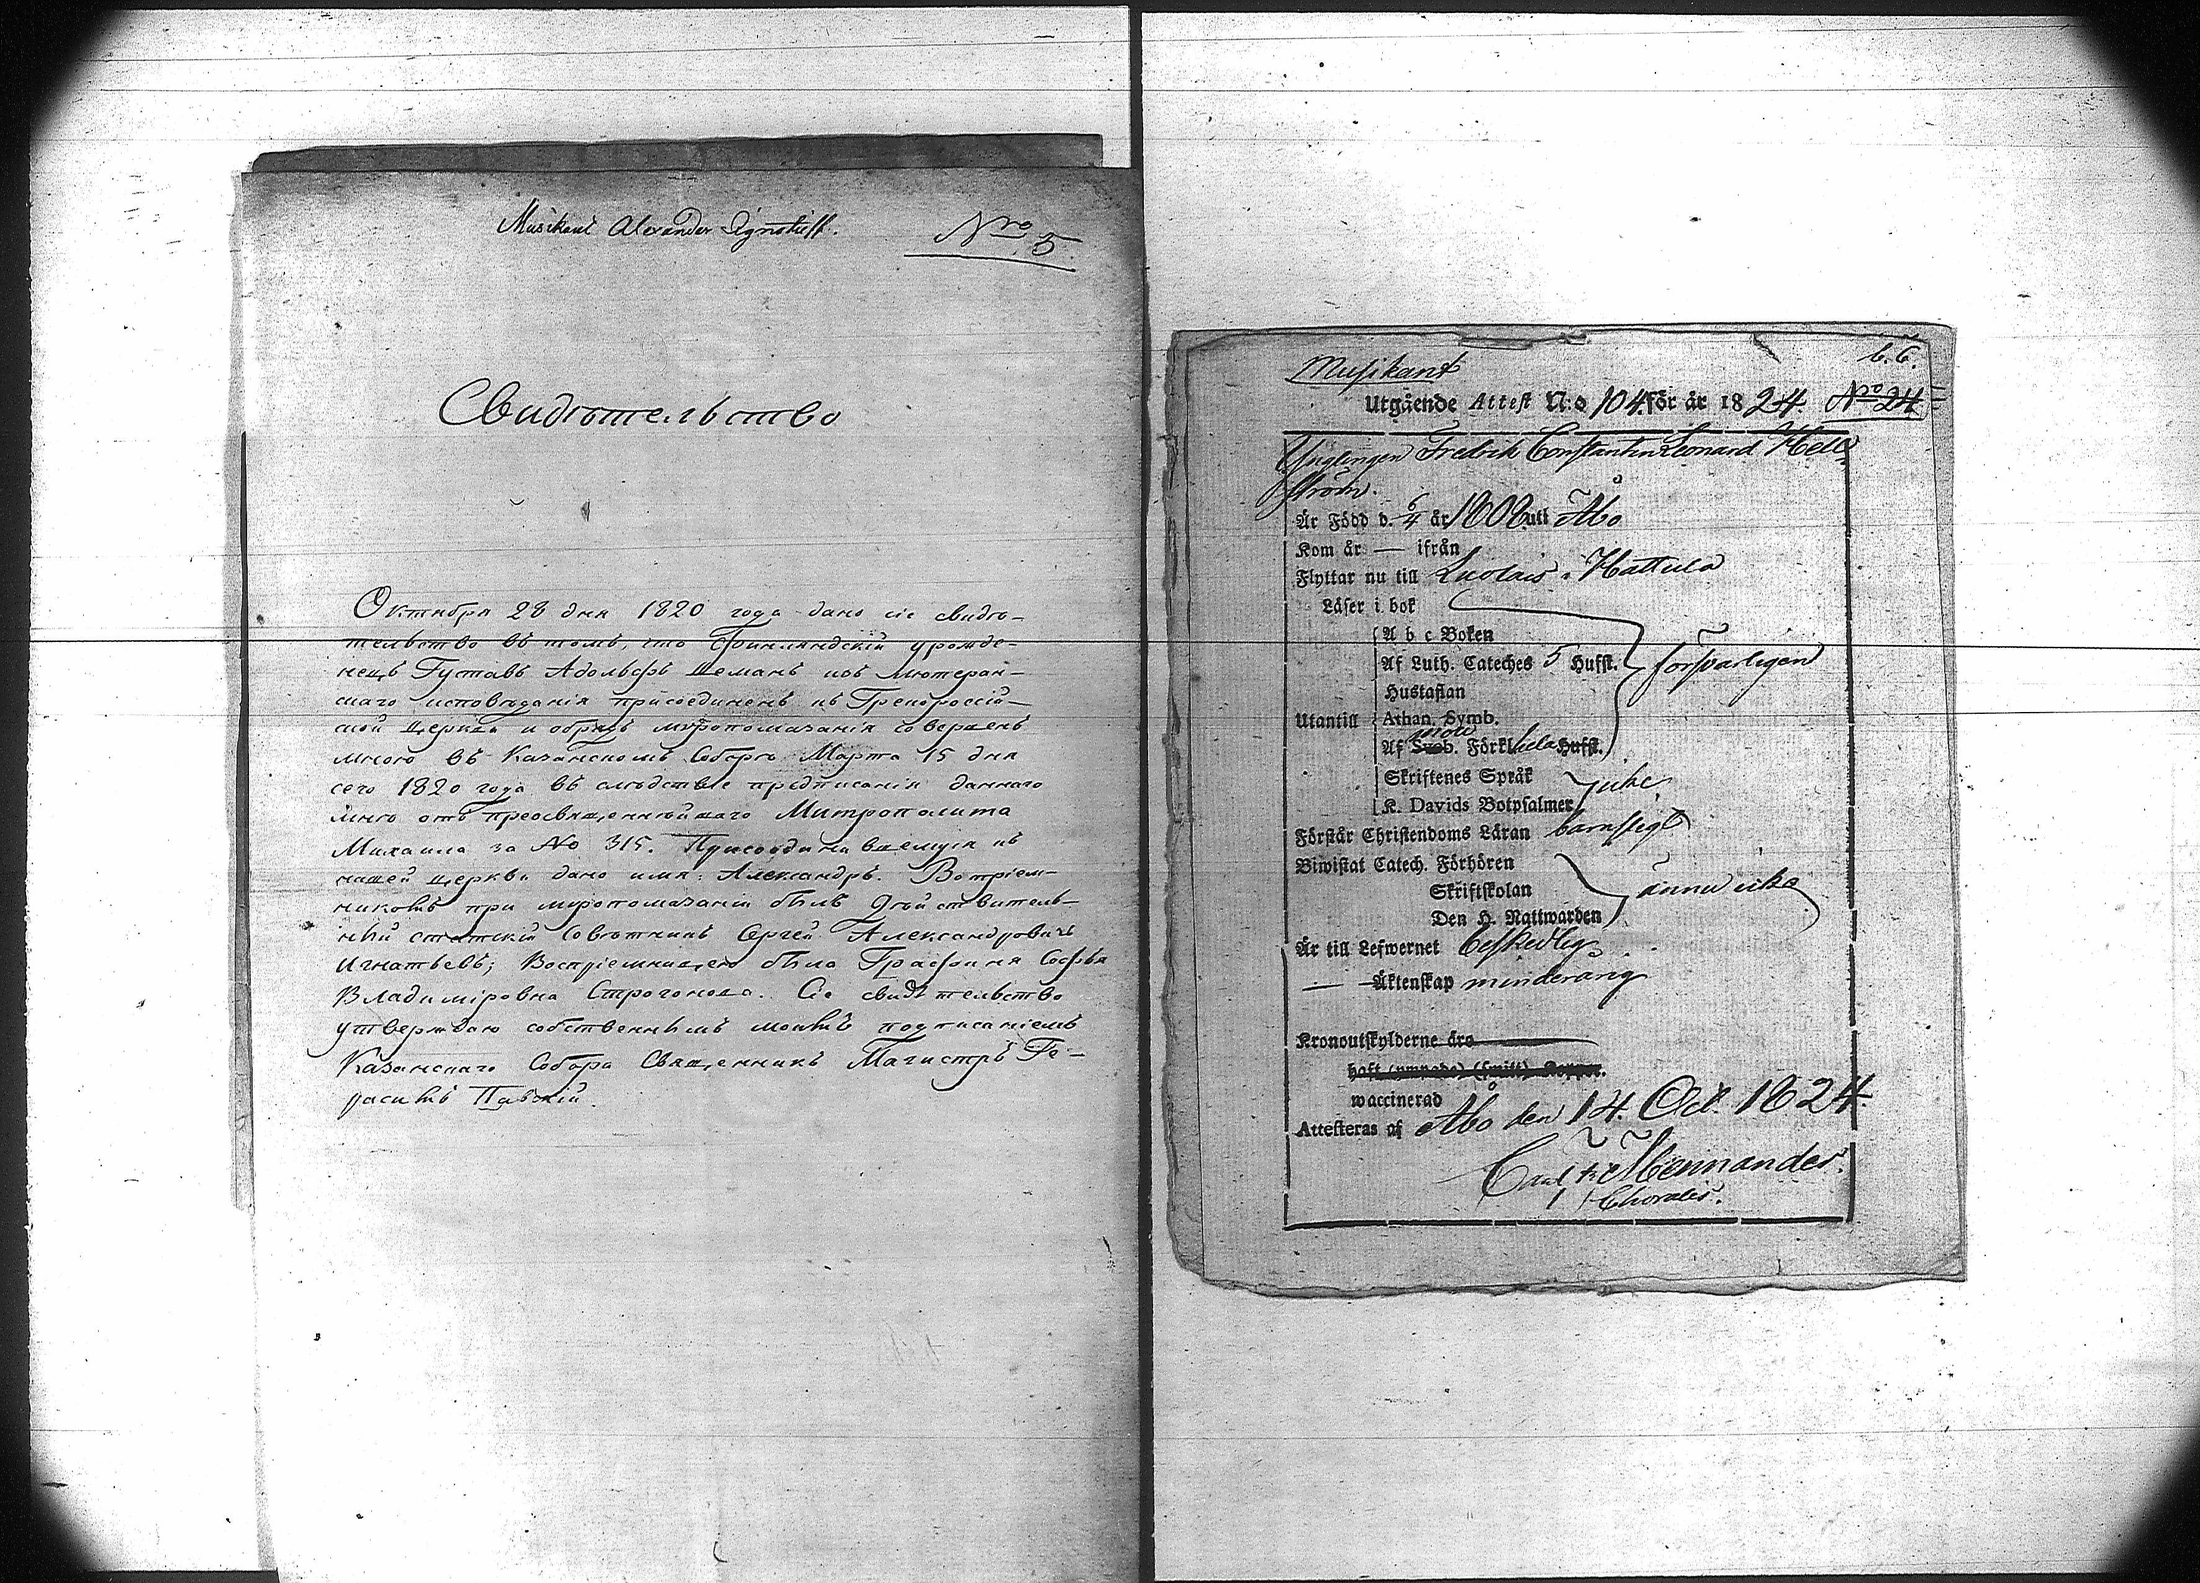 Musikant Alexander Ignatieff.
Nro 5.
Свидѣтельство
Октября 28 дня 1820 года дано сіе свидѣ-
тельство въ томъ, что Финляндскій урожде-
нецъ Густавъ Адольфъ Деманъ изъ Лютеран-
скаго исповѣданія присоединенъ къ Грекороссій-
ской Церкви и обрядъ мѵропомазанія совершенъ
мною въ Казанскомъ Соборѣ Марта 15 дня
сего 1820 года въ слѣдствіе предписанія даннаго
мнѣ отъ преосвященнѣйшаго Митрополита
Михаила за No 315. Присоединившемуся къ
нашей церкви дано имя: Александръ. Воспріем-
никомъ при мѵропомазаніи былъ Дѣйствитель-
ный статскій Совѣтникъ Сергей Александровичь
Игнатьевъ; Воспріемницею была Графиня Софья
Владиміровна Строгонова. Сіе свидѣтельство
утверждаю собственнымъ моимъ подписаніемъ
Казанскаго Собора Священникъ Магистръ Ге-
расимъ Павскій.
Musikant
b.6.
Utgående Attest N:o 104. för år 1824. No 24
Ynglingen Fredrik Constantin Leonard Hell-
ström.
Är Född d. 6/4 år 1808 uti Åbo
Kom år — ifrån
Flyttar nu till Luolais i Hattula
Läser i bok
A b c Boken
Af Luth. Cateches 5 Hufst. försvarligen
Hustaflan
Utantill Athan. Symb.
Af Sveb. Förkl. hela Hufst.
Skriftenes Språk icke
K. Davids Botpsalmer
Förstår Christendoms Läran barnsligt
Biwistat Catech. Förhören
Skriftskolan ännu icke
Den H. Nattwarden
Är till Lefwernet beskedlig
— Äktenskap minderårig
Kronoutskylderne äro
haft (ympade) (smitt) Koppor.
waccinerad
Attesteras af Åbo den 14. Oct. 1824.
Carl Fr. Mennander.
Choralis.